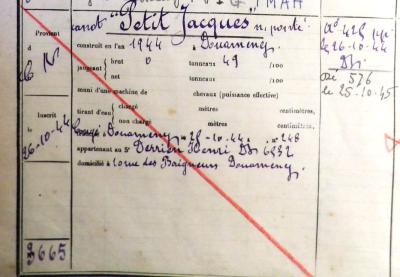 canot "Petit Jacques" n. ponté
Provient
d
N
construit en l'an 1944 à Douarnenez
jaugeant
brut 0 tonneaux 49 /100
net tonneaux /100
muni d'une machine de chevaux (puissance effective)
tirant d'eau
chargé mètres centimètres,
non chargé mètres centimètres,
Inscrit
le
26-10-44
Congé Douarnenez 25-10-44 n° 248
appartenant au Sr Derrien Henri Dz 6232
domicilié à rue des Baigneurs Douarnenez
3665
26-10-44
Dz
576
le 25-10-45